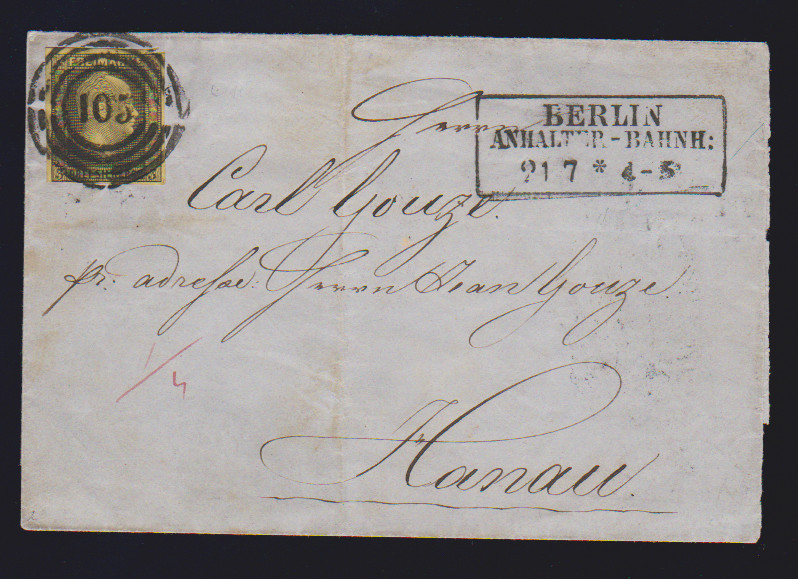 FREIMARKE
105
BERLIN
ANHALTER-BAHNH:
21 7 * 4-5
Herrn
Carl Gouze.
pr. adresse: Herrn Jean Gouze.
1/4
Hanau.